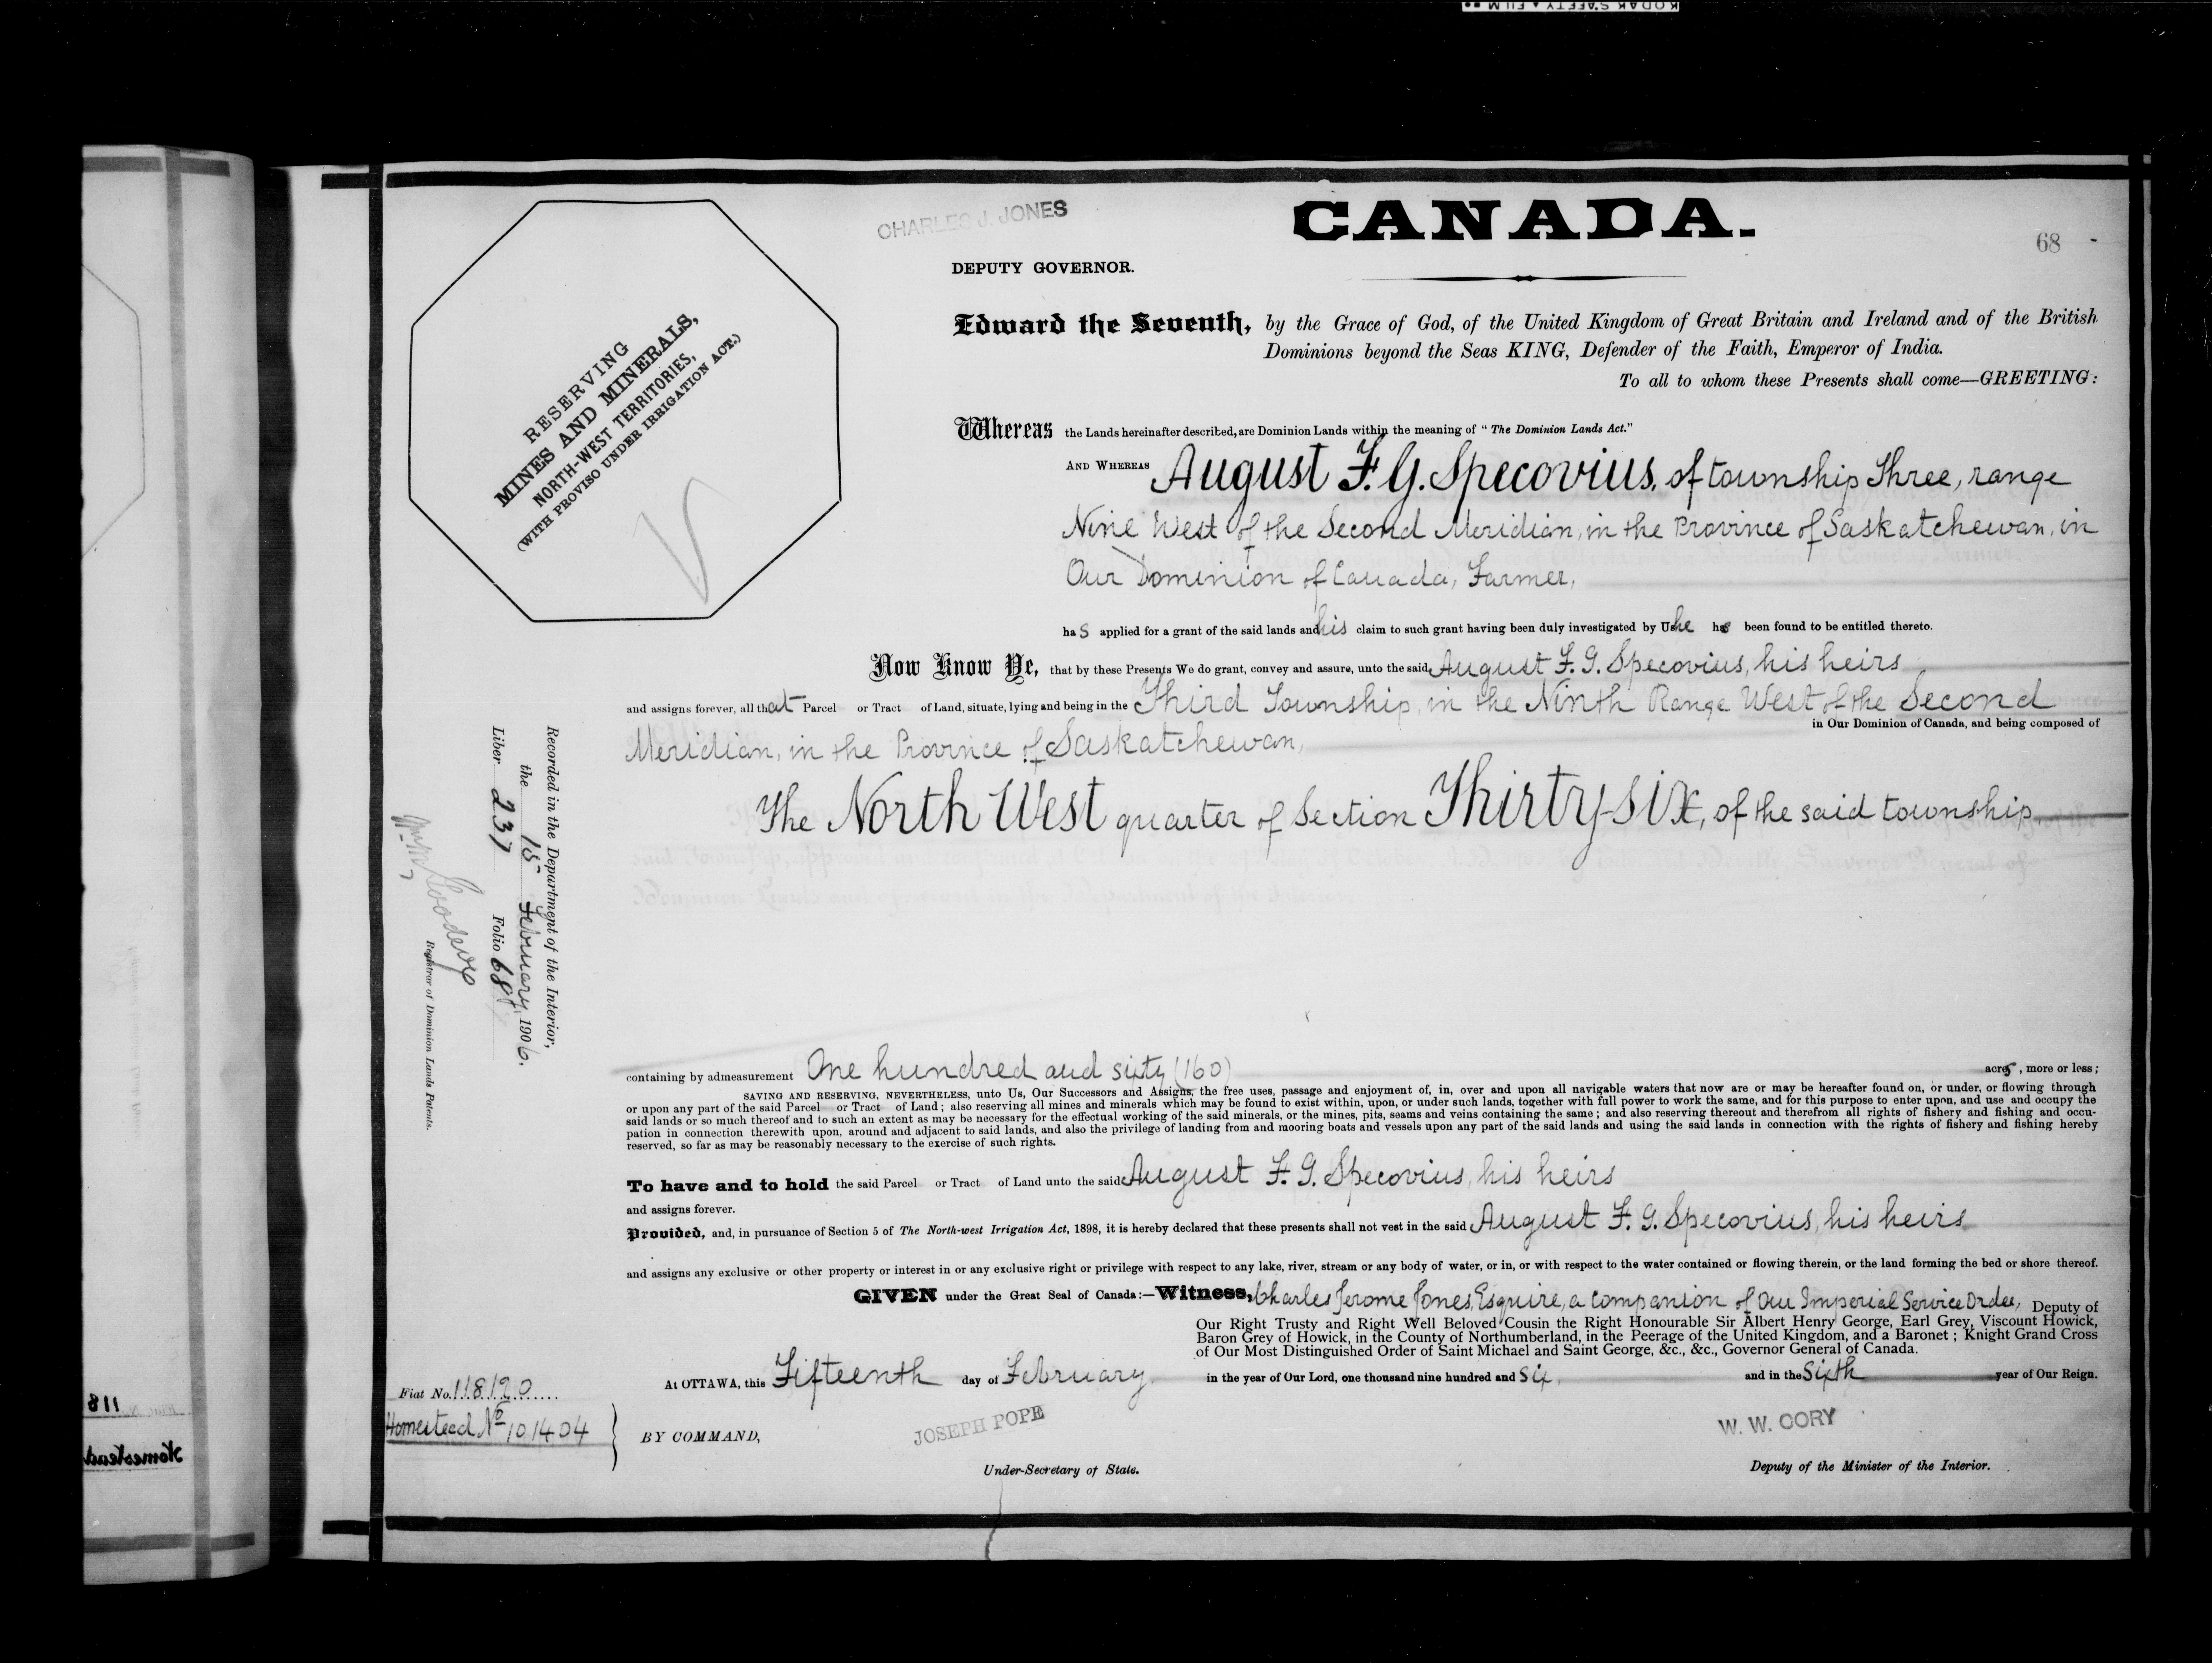 KODAK SAFETY FILM
CHARLES J. JONES
CANADA.
68
DEPUTY GOVERNOR.
RESERVING
MINES AND MINERALS,
NORTH-WEST TERRITORIES,
(WITH PROVISO UNDER IRRIGATION ACT.)
Edward the Seventh, by the Grace of God, of the United Kingdom of Great Britain and Ireland and of the British
Dominions beyond the Seas KING, Defender of the Faith, Emperor of India.
To all to whom these Presents shall come—GREETING:
Whereas the Lands hereinafter described, are Dominion Lands within the meaning of "The Dominion Lands Act."
AND WHEREAS August F. G. Specovius, of township Three, range
Nine West of the Second Meridian, in the Province of Saskatchewan, in
Our Dominion of Canada, Farmer,
has applied for a grant of the said lands and his claim to such grant having been duly investigated by Us he has been found to be entitled thereto.
Now Know Ye, that by these Presents We do grant, convey and assure, unto the said August F. G. Specovius, his heirs
and assigns forever, all that Parcel or Tract of Land, situate, lying and being in the Third Township, in the Ninth Range West of the Second
in Our Dominion of Canada, and being composed of
Meridian, in the Province of Saskatchewan,
The North West quarter of Section Thirty-six, of the said township.
Recorded in the Department of the Interior,
the 15 February, 1906.
Liber 237 Folio 68
Registrar of Dominion Lands Patents.
containing by admeasurement One hundred and sixty (160) acres, more or less;
SAVING AND RESERVING, NEVERTHELESS, unto Us, Our Successors and Assigns, the free uses, passage and enjoyment of, in, over and upon all navigable waters that now are or may be hereafter found on, or under, or flowing through
or upon any part of the said Parcel or Tract of Land; also reserving all mines and minerals which may be found to exist within, upon, or under such lands, together with full power to work the same, and for this purpose to enter upon, and use and occupy the
said lands or so much thereof and to such an extent as may be necessary for the effectual working of the said minerals, or the mines, pits, seams and veins containing the same; and also reserving thereout and therefrom all rights of fishery and fishing and occu-
pation in connection therewith upon, around and adjacent to said lands, and also the privilege of landing from and mooring boats and vessels upon any part of the said lands and using the said lands in connection with the rights of fishery and fishing hereby
reserved, so far as may be reasonably necessary to the exercise of such rights.
To have and to hold the said Parcel or Tract of Land unto the said August F. G. Specovius, his heirs
and assigns forever.
Provided, and, in pursuance of Section 5 of The North-west Irrigation Act, 1898, it is hereby declared that these presents shall not vest in the said August F. G. Specovius, his heirs
and assigns any exclusive or other property or interest in or any exclusive right or privilege with respect to any lake, river, stream or any body of water, or in, or with respect to the water contained or flowing therein, or the land forming the bed or shore thereof.
GIVEN under the Great Seal of Canada:—Witness, Charles Jerome Jones, Esquire, a Companion of Our Imperial Service Order, Deputy of
Our Right Trusty and Right Well Beloved Cousin the Right Honourable Sir Albert Henry George, Earl Grey, Viscount Howick,
Baron Grey of Howick, in the County of Northumberland, in the Peerage of the United Kingdom, and a Baronet; Knight Grand Cross
of Our Most Distinguished Order of Saint Michael and Saint George, &c., &c., Governor General of Canada.
At OTTAWA, this Fifteenth day of February in the year of Our Lord, one thousand nine hundred and Six, and in the Sixth year of Our Reign.
Fiat No. 118120
Homestead No 101404
BY COMMAND,
JOSEPH POPE
W. W. CORY
Under-Secretary of State.
Deputy of the Minister of the Interior.
118
Homestead